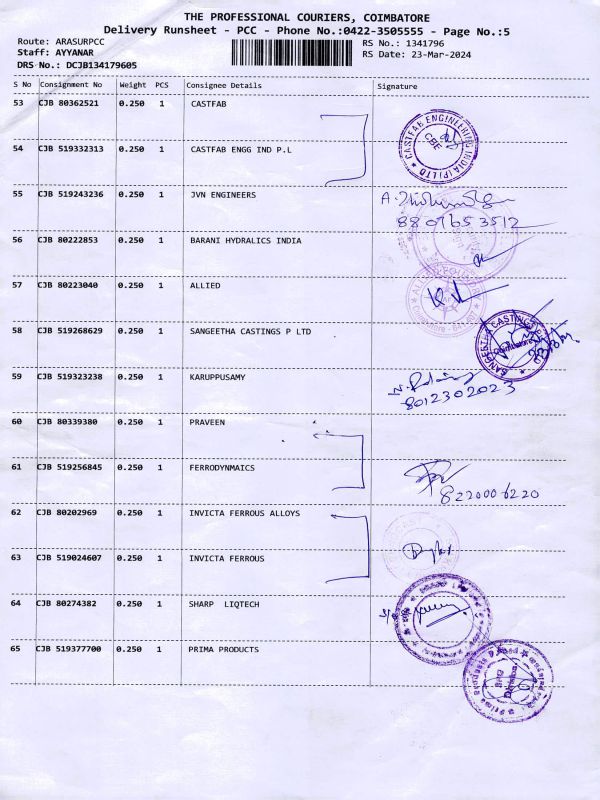 THE PROFESSIONAL COURIERS, COIMBATORE
Delivery Runsheet - PCC - Phone No.:0422-3505555 - Page No.:5
Route: ARASURPCC RS No.: 1341796
Staff: AYYANAR RS Date: 23-Mar-2024
DRS No.: DCJB134179605
S No Consignment No Weight PCS Consignee Details Signature
53 CJB 80362521 0.250 1 CASTFAB
54 CJB 519332313 0.250 1 CASTFAB ENGG IND P.L
CASTFAB ENGINEERING INDIA (P) LTD
CBE
55 CJB 519243236 0.250 1 JVN ENGINEERS
8807653512
56 CJB 80222853 0.250 1 BARANI HYDRALICS INDIA
57 CJB 80223040 0.250 1 ALLIED
58 CJB 519268629 0.250 1 SANGEETHA CASTINGS P LTD
SANGEETHA CASTINGS P
Coimbatore
59 CJB 519323238 0.250 1 KARUPPUSAMY
8012302023
60 CJB 80339380 0.250 1 PRAVEEN
61 CJB 519256845 0.250 1 FERRODYNMAICS
8220006220
62 CJB 80202969 0.250 1 INVICTA FERROUS ALLOYS
63 CJB 519024607 0.250 1 INVICTA FERROUS
64 CJB 80274382 0.250 1 SHARP LIQTECH
65 CJB 519377700 0.250 1 PRIMA PRODUCTS